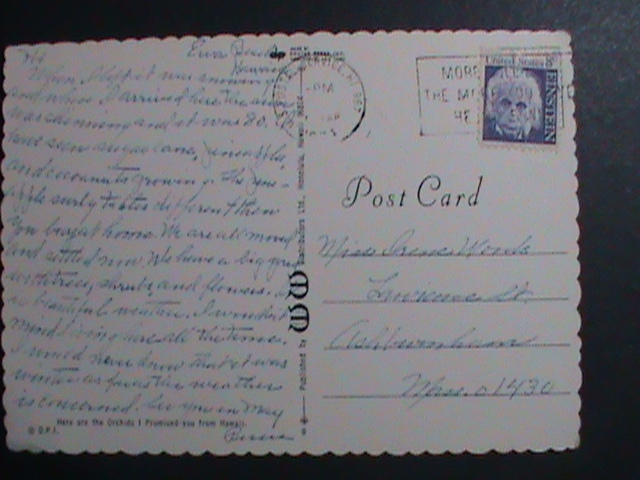 Ewa Beach
Hawaii
When I left it was snowing
and when I arrived here the sun
was shinning and it was 80.
have seen sugar cane, pineapple
and coconuts growing. The pine-
apple surly tastes different than
you buy at home. We are all moved
and settled now. We have a big yard
with trees, shrubs and flowers.
beautiful weather. I wouldn't
mind living here all the time.
I would never know that it was
winter as far as the weather
is concerned. See you in May
Here are the Orchids I Promised you from Hawaii.
© D.P.I.
Published by
Distributors Ltd., Honolulu, Hawaii
PM
MORE
THE M
United States
8c
EINSTEIN
Post Card
Miss Irene Woods
Lawrence St.
Ashburnham
Mass. 01430